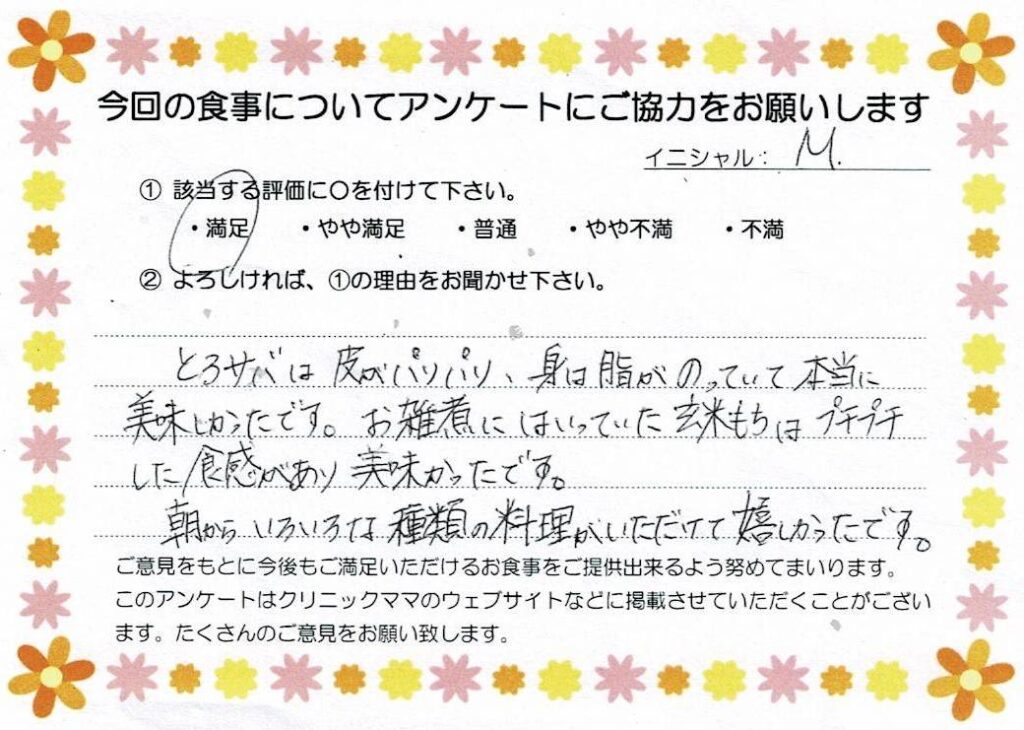 今回の食事についてアンケートにご協力をお願いします
イニシャル： M.
① 該当する評価に○を付けて下さい。
・満足 ・やや満足 ・普通 ・やや不満 ・不満
② よろしければ、①の理由をお聞かせ下さい。
とろサバは皮がパリパリ、身は脂がのっていて本当に
美味しかったです。お雑煮にはいっていた玄米もちはプチプチ
した食感があり美味かったです。
朝からいろいろな種類の料理がいただけて嬉しかったです。
ご意見をもとに今後もご満足いただけるお食事をご提供出来るよう努めてまいります。
このアンケートはクリニックママのウェブサイトなどに掲載させていただくことがござい
ます。たくさんのご意見をお願い致します。